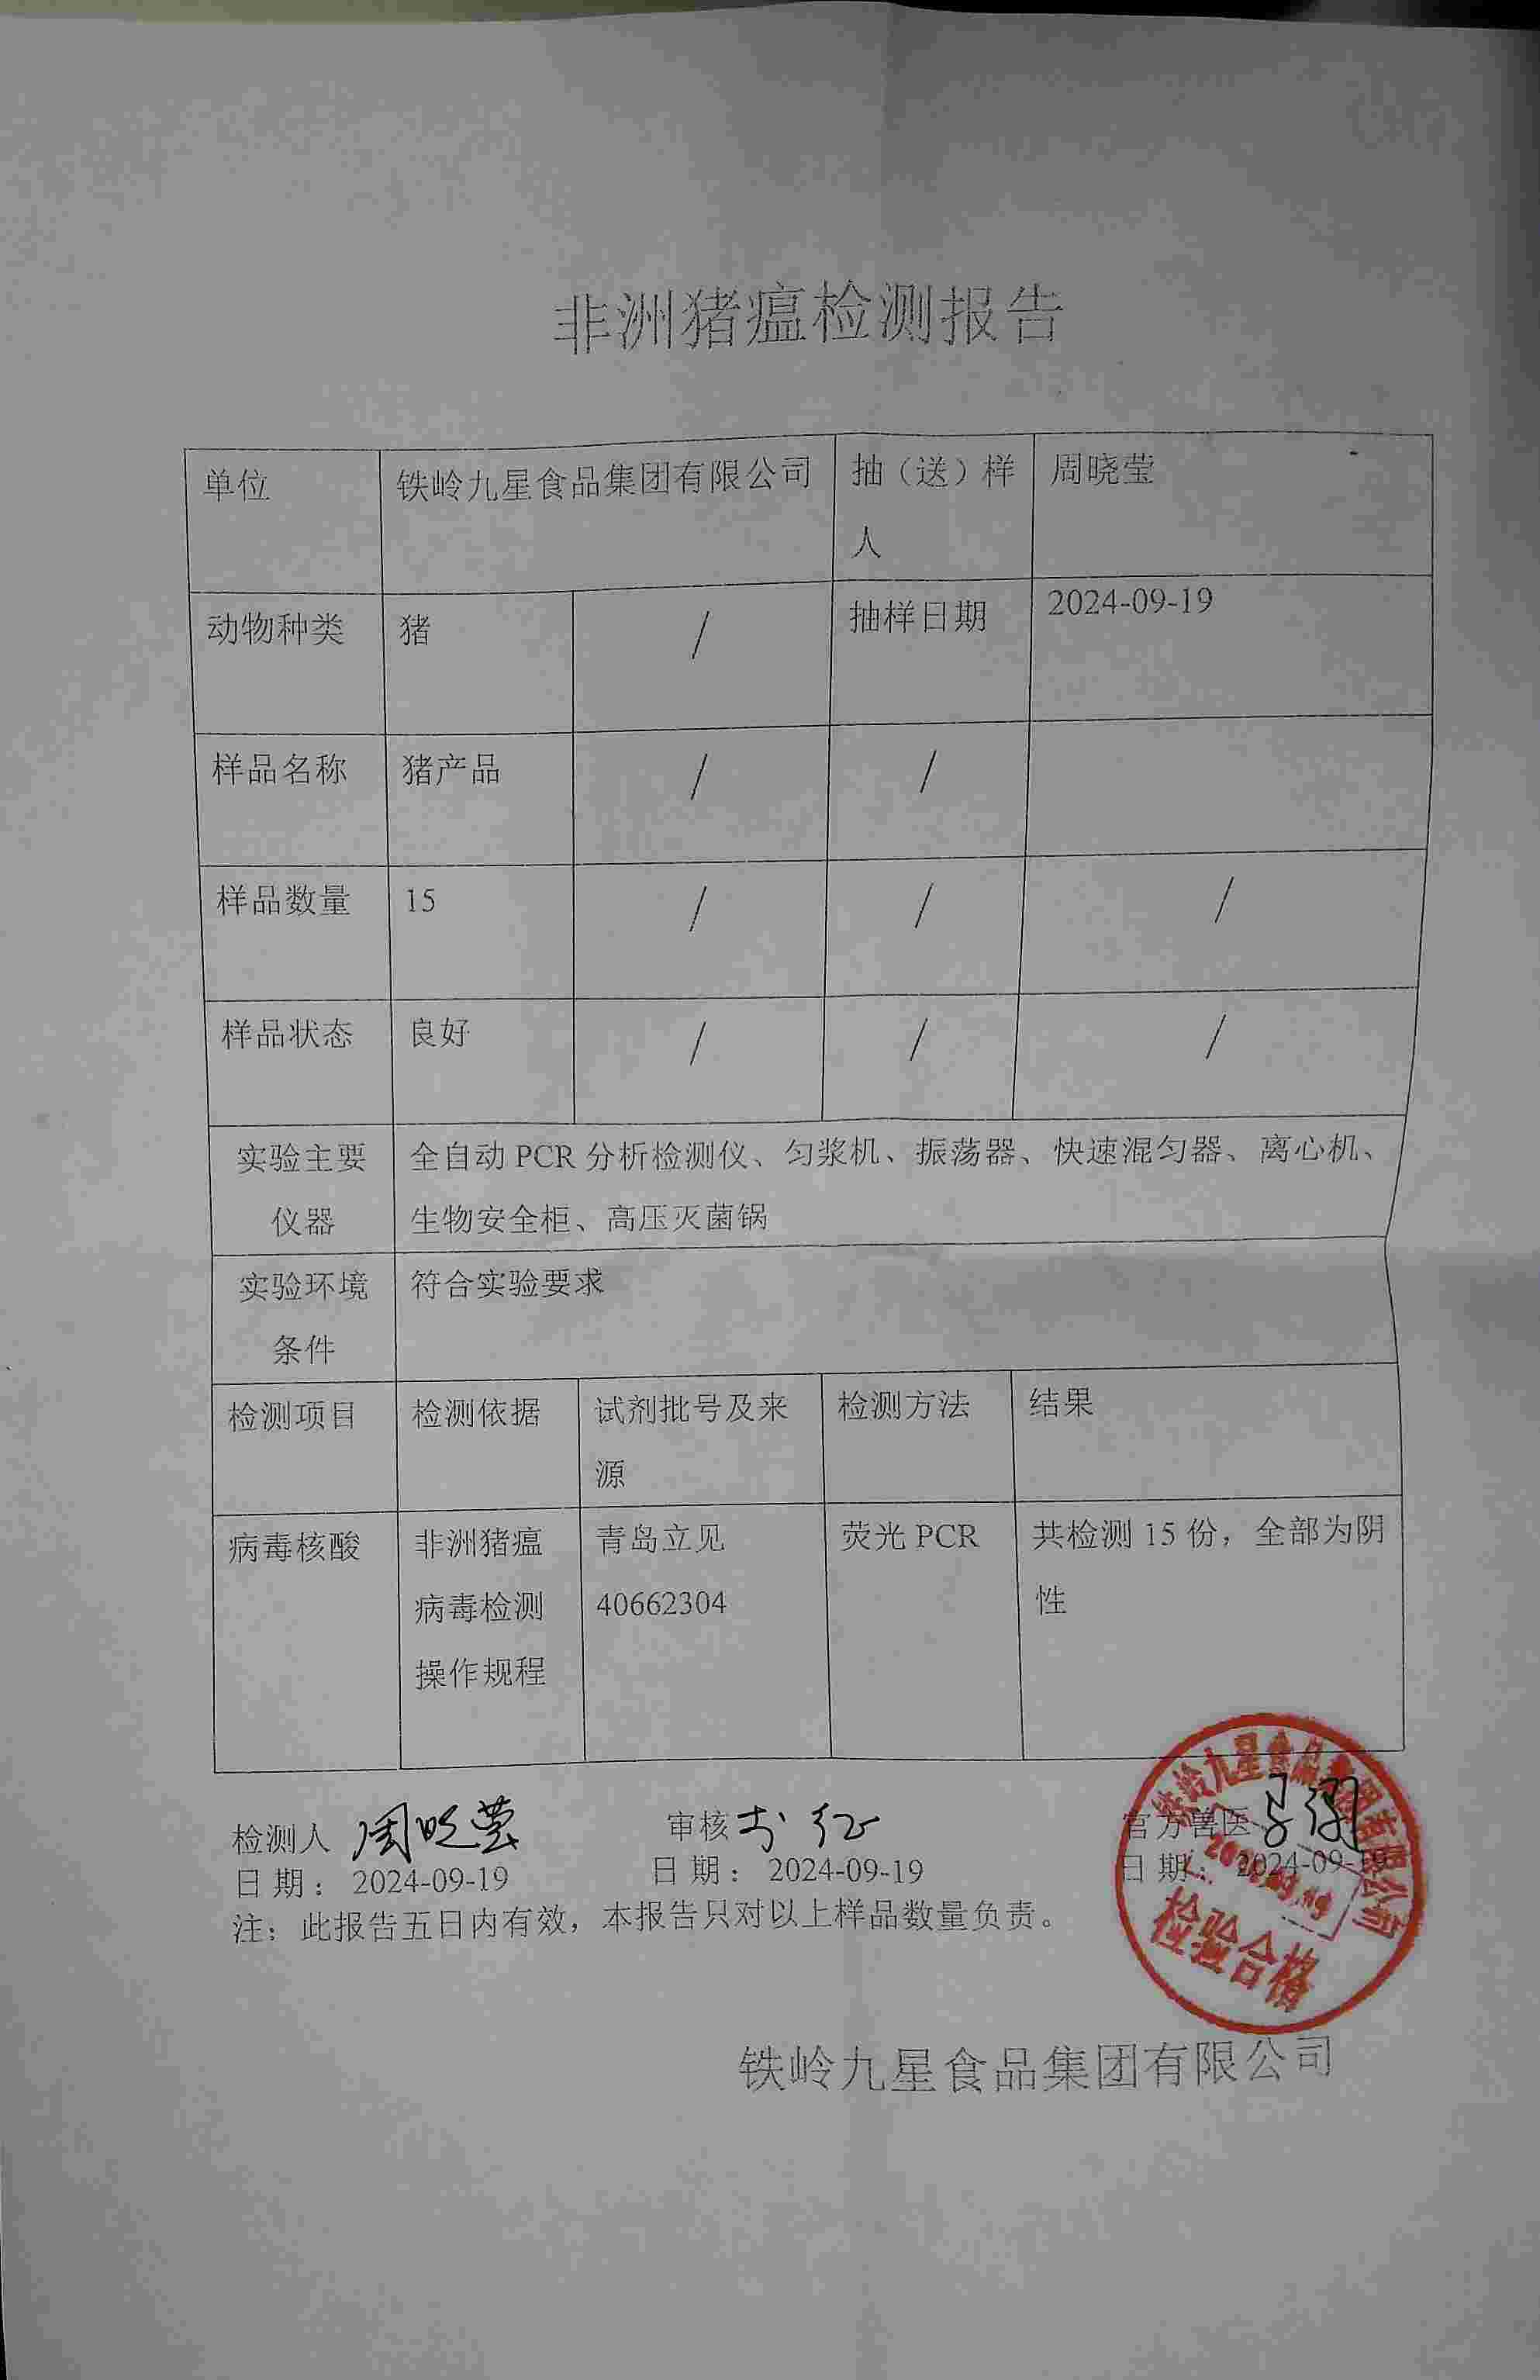 非洲猪瘟检测报告
单位 铁岭九星食品集团有限公司 抽（送）样 周晓莹
人
动物种类 猪 / 抽样日期 2024-09-19
样品名称 猪产品 / /
样品数量 15 / / /
样品状态 良好 / / /
实验主要 全自动 PCR 分析检测仪、匀浆机、振荡器、快速混匀器、离心机、
仪器 生物安全柜、高压灭菌锅
实验环境 符合实验要求
条件
检测项目 检测依据 试剂批号及来 检测方法 结果
源
病毒核酸 非洲猪瘟 青岛立见 荧光 PCR 共检测 15 份，全部为阴
病毒检测 40662304 性
操作规程
检测人 周晓莹 审核 官方兽医
日期：2024-09-19 日期：2024-09-19 日期：2024-09-19
注：此报告五日内有效，本报告只对以上样品数量负责。
铁岭九星食品集团有限公司
检验合格
铁岭九星食品集团有限公司